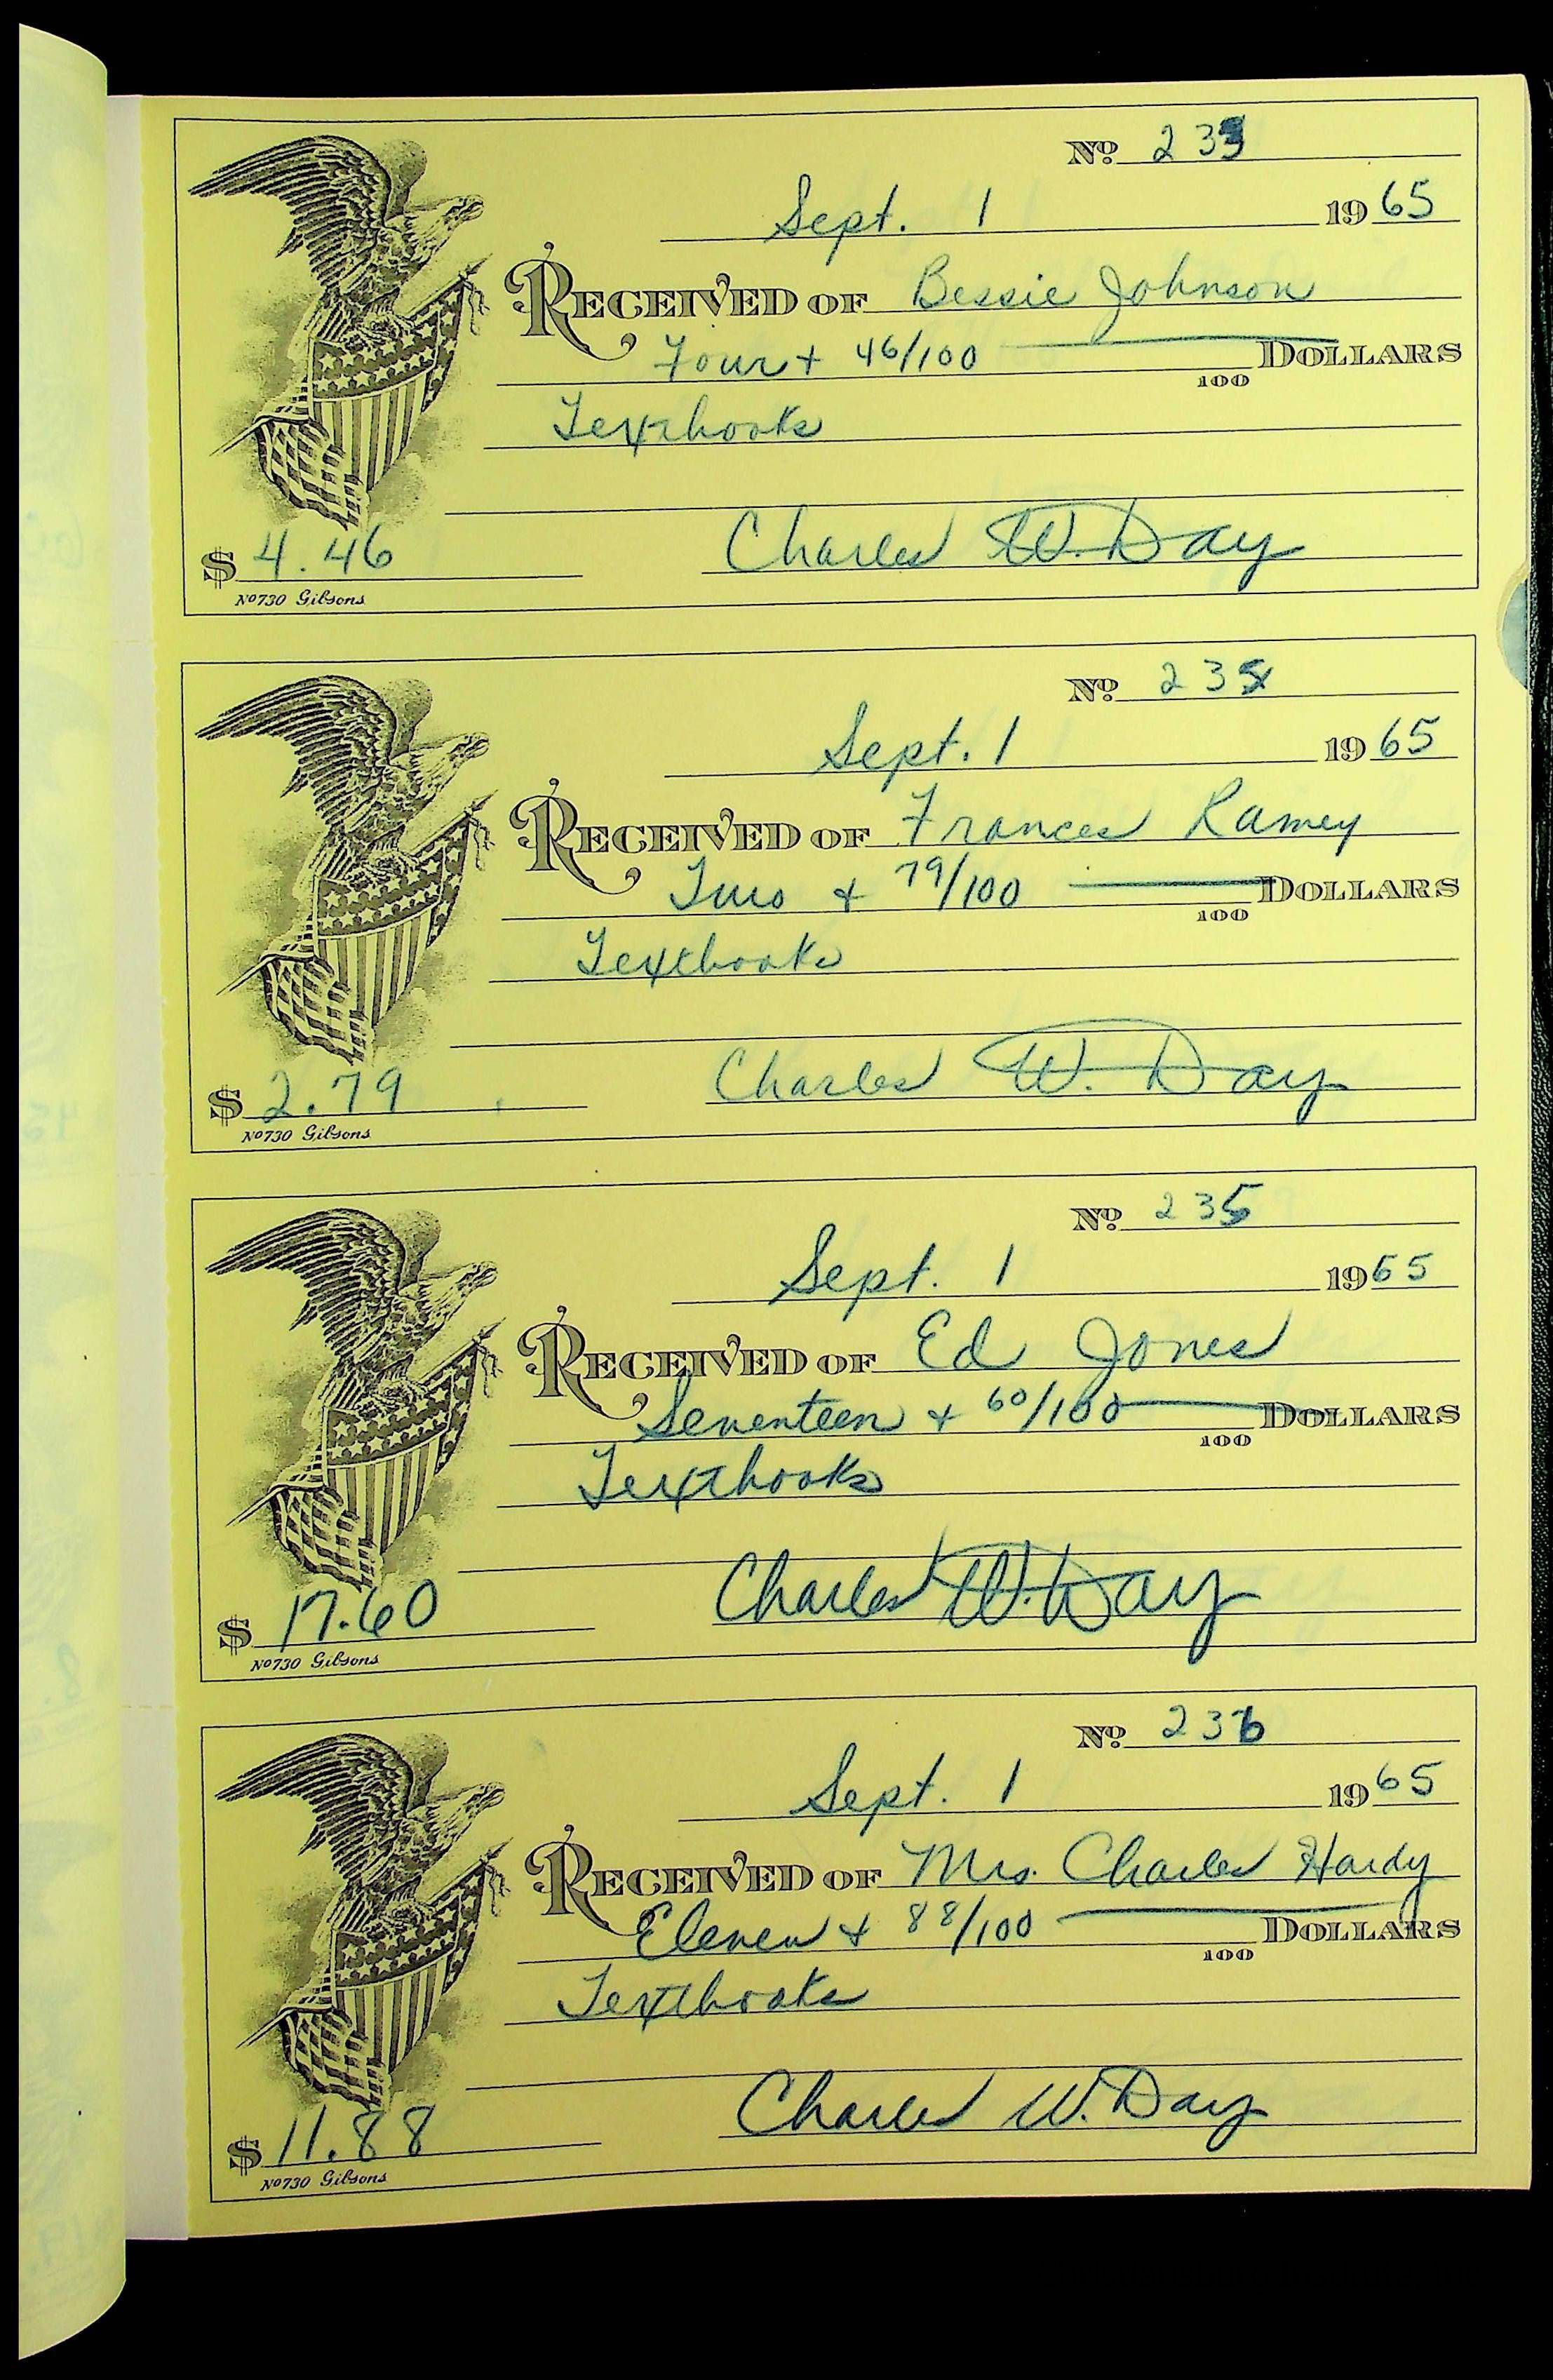 No 233
Sept. 1 1965
RECEIVED OF Bessie Johnson
Four + 46/100 100 DOLLARS
Textbooks
$ 4.46 Charles W. Day
No 730 Gibsons
No 234
Sept. 1 1965
RECEIVED OF Frances Ramey
Two + 79/100 100 DOLLARS
Textbooks
$ 2.79 Charles W. Day
No 730 Gibsons
No 235
Sept. 1 1965
RECEIVED OF Ed Jones
Seventeen + 60/100 100 DOLLARS
Textbooks
$ 17.60 Charles W. Day
No 730 Gibsons
No 236
Sept. 1 1965
RECEIVED OF Mrs. Charles Hardy
Eleven + 88/100 100 DOLLARS
Textbooks
$ 11.88 Charles W. Day
No 730 Gibsons